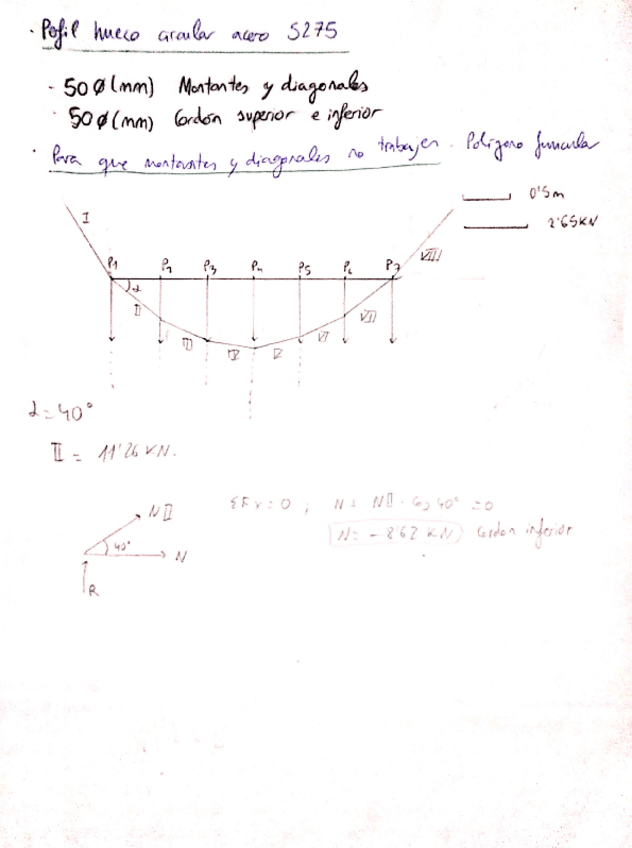 · Pefil hueco circular acero S275
- 50 ø (mm) Montantes y diagonales
· 50 ø (mm) Cordón superior e inferior
· Para que montantes y diagonales no trabajen. Polígono funicular
0'5m
2'65KN
I
VIII
P1 P2 P3 P4 P5 P6 P7
α
II
III
IV
V
VI
VII
α = 40°
II = 11'26 KN.
NII
40°
N
R
ΣFx = 0 ; N + NII · Cos 40° = 0
N = -8'62 KN Cordon inferior